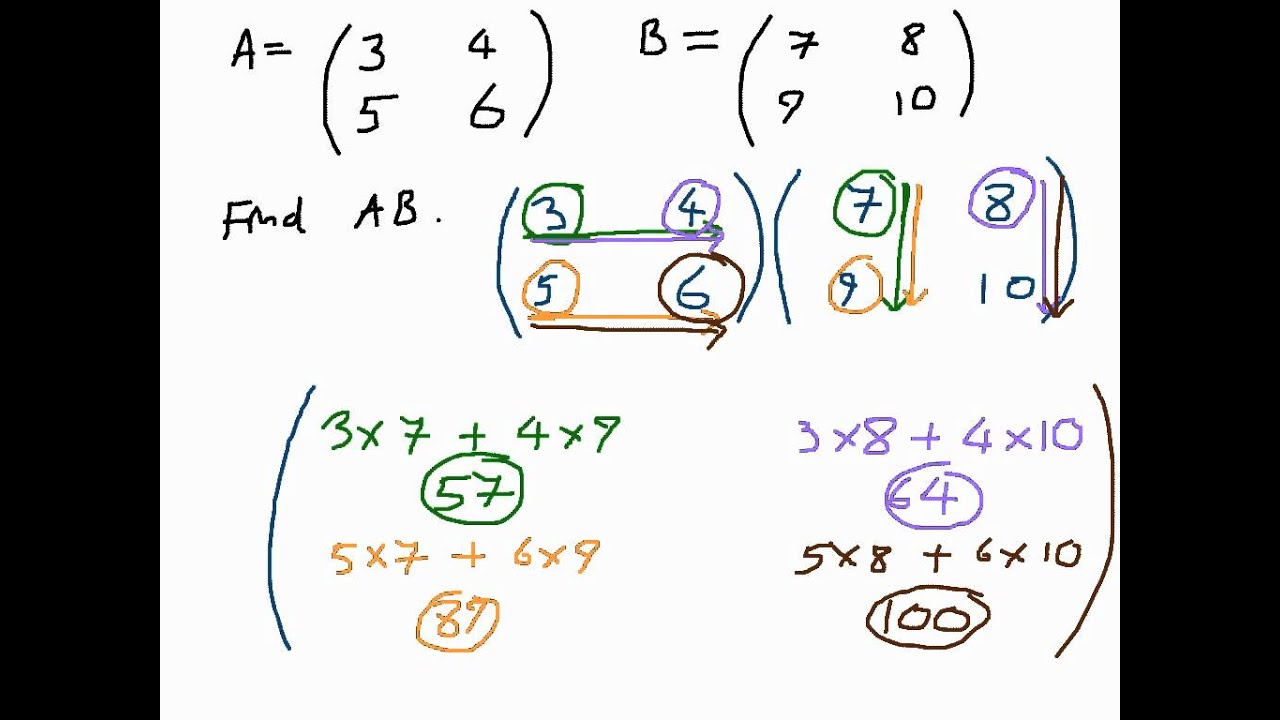 A = ( 3 4 5 6 ) B = ( 7 8 9 10 )
Find AB. ( 3 4 5 6 ) ( 7 8 9 10 )
( 3 × 7 + 4 × 9 3 × 8 + 4 × 10
57 64
5 × 7 + 6 × 9 5 × 8 + 6 × 10
89 100 )